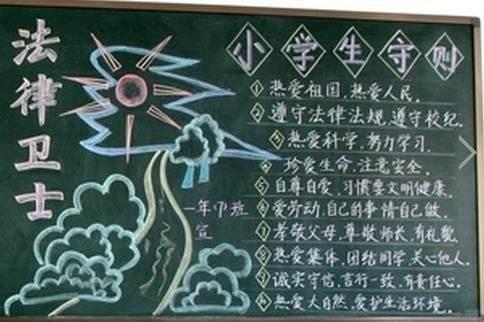 法律卫士
小学生守则
①热爱祖国,热爱人民。
②遵守法律法规,遵守校纪。
③热爱科学,努力学习。
④珍爱生命,注意安全。
⑤自尊自爱,习惯要文明健康。
⑥爱劳动,自己的事情自己做。
⑦孝敬父母,尊敬师长,有礼貌。
⑧热爱集体,团结同学,关心他人。
⑨诚实守信,言行一致,有责任心。
⑩热爱大自然,爱护生活环境。
一年
班
宣